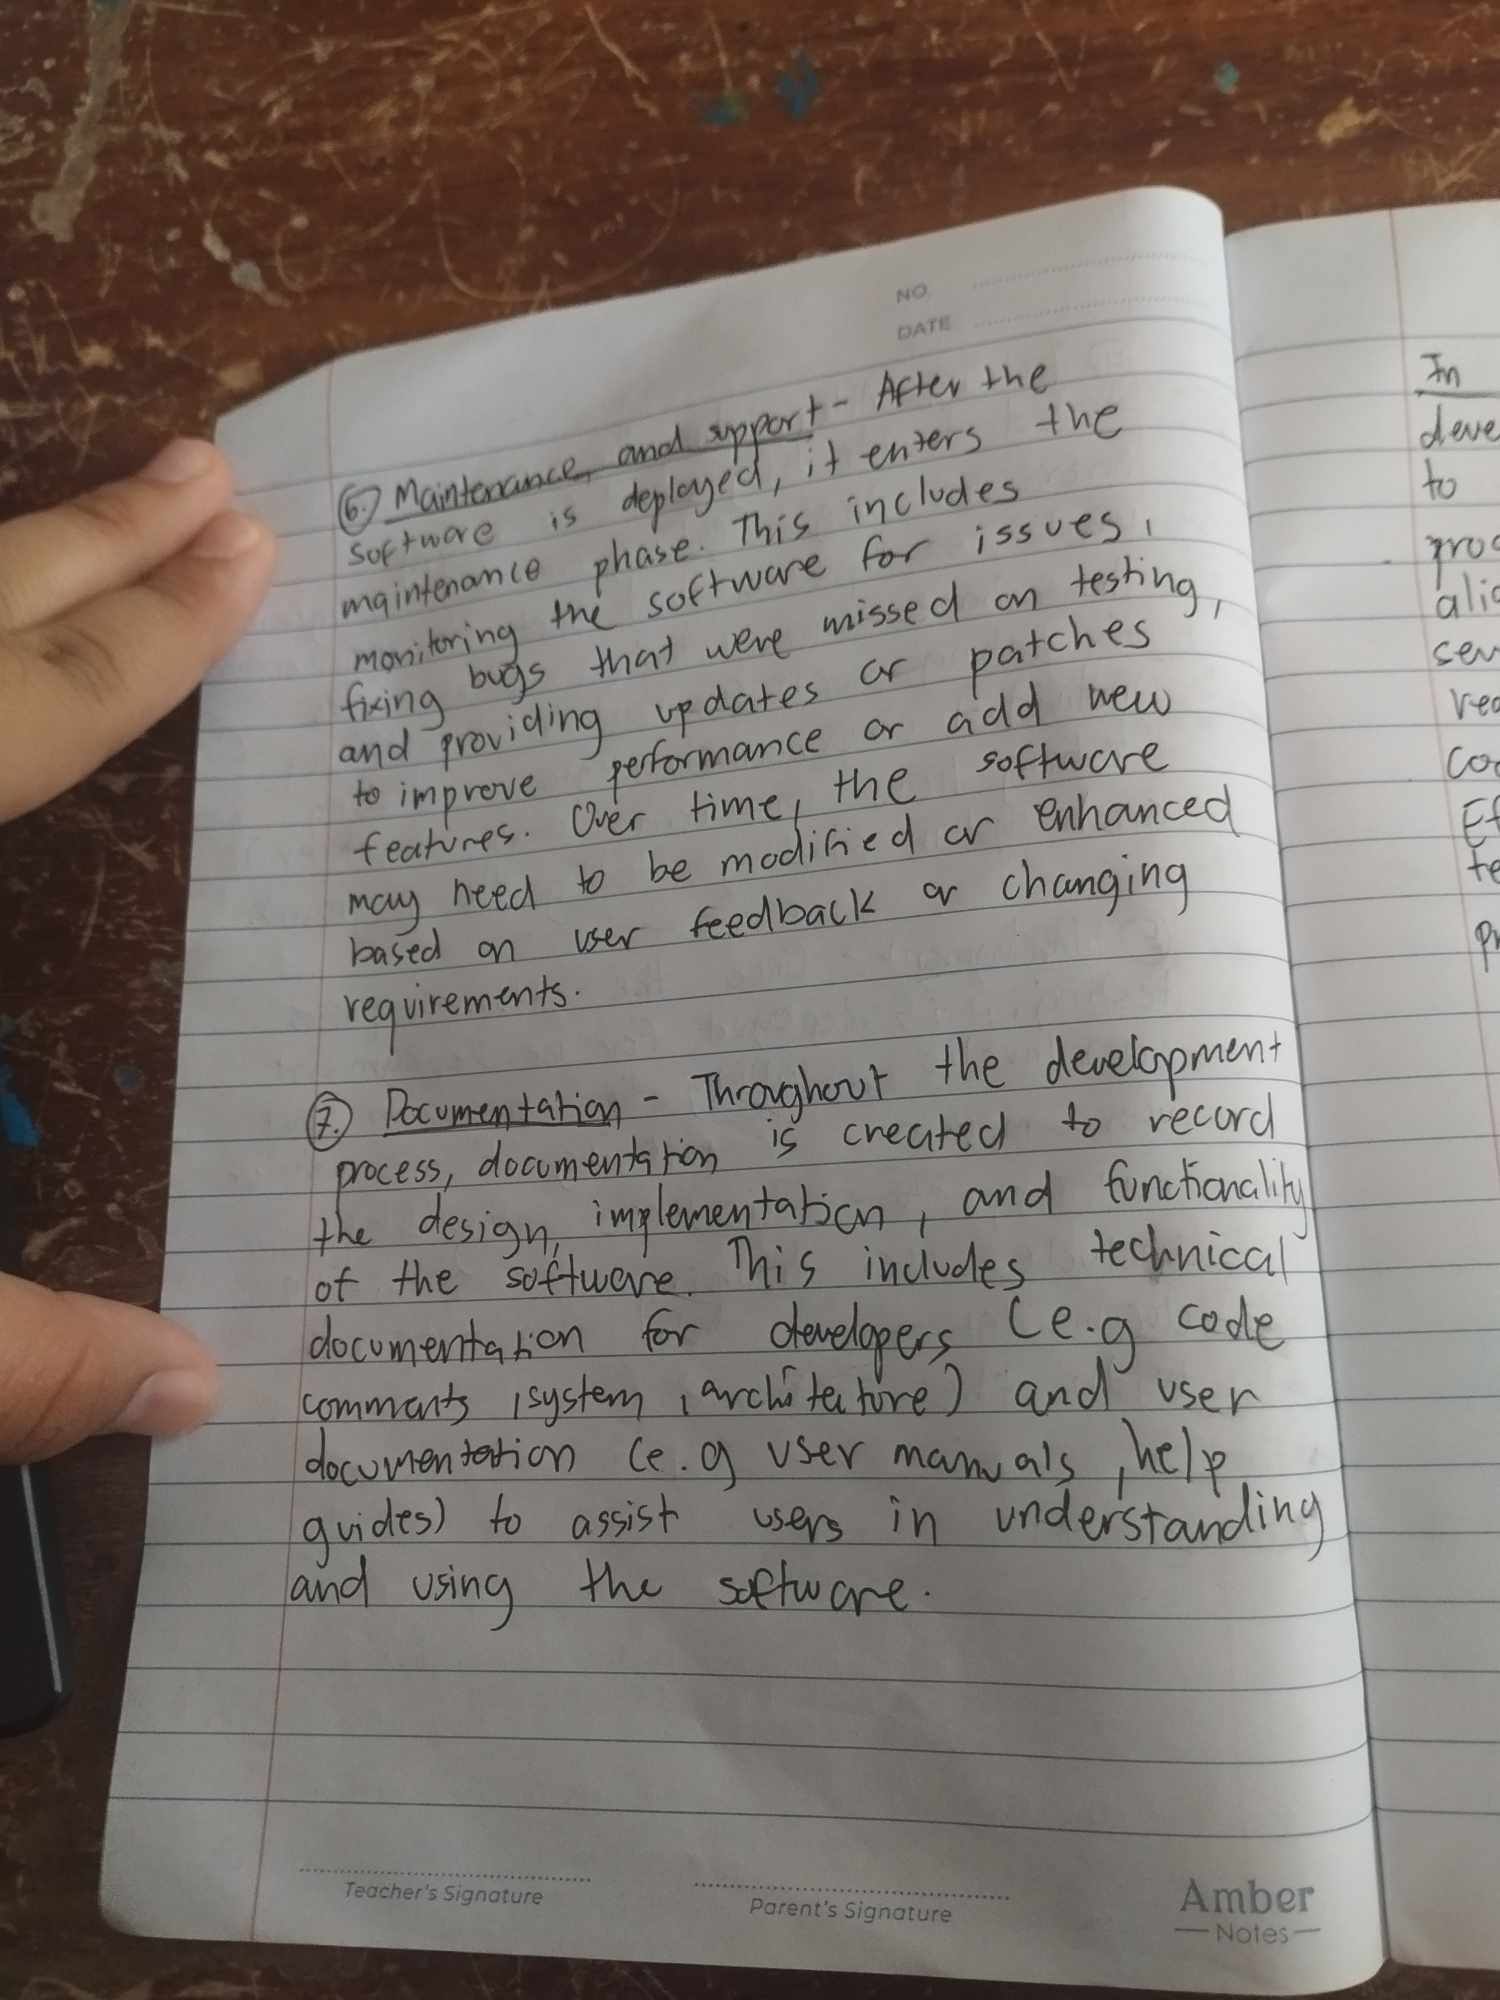 NO.
DATE
6. Maintenance, and support - After the
software is deployed, it enters the
maintenance phase. This includes
monitoring the software for issues,
fixing bugs that were missed on testing,
and providing updates or patches
to improve performance or add new
features. Over time, the software
may need to be modified or enhanced
based on user feedback or changing
requirements.
7. Documentation - Throughout the development
process, documentation is created to record
the design, implementation, and functionality
of the software. This includes technical
documentation for developers (e.g code
comments, system, architecture) and user
documentation (e.g user manuals, help
guides) to assist users in understanding
and using the software.
Teacher's Signature
Parent's Signature
Amber
Notes
In
deve
to
proc
sev
co
te
pr